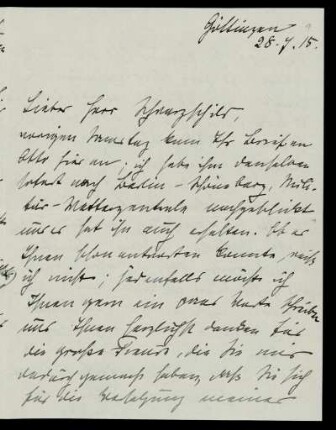 Göttingen
28. 7. 15.
Lieber Herr Schwarzschild,
vorigen Samstag kam Ihr Brief an
Otto hier an; ich habe ihn denselben
sofort nach Berlin-Schöneberg, Mili-
tär-Wetterzentrale nachgeschickt
und er hat ihn auch erhalten. Ob er
Ihnen schon antworten konnte, weiß
ich nicht; jedenfalls möchte ich
Ihnen gern ein paar Worte schreiben
und Ihnen herzlichst danken für
die große Freude, die Sie mir
dadurch gemacht haben, daß Sie sich
für die Versetzung meines